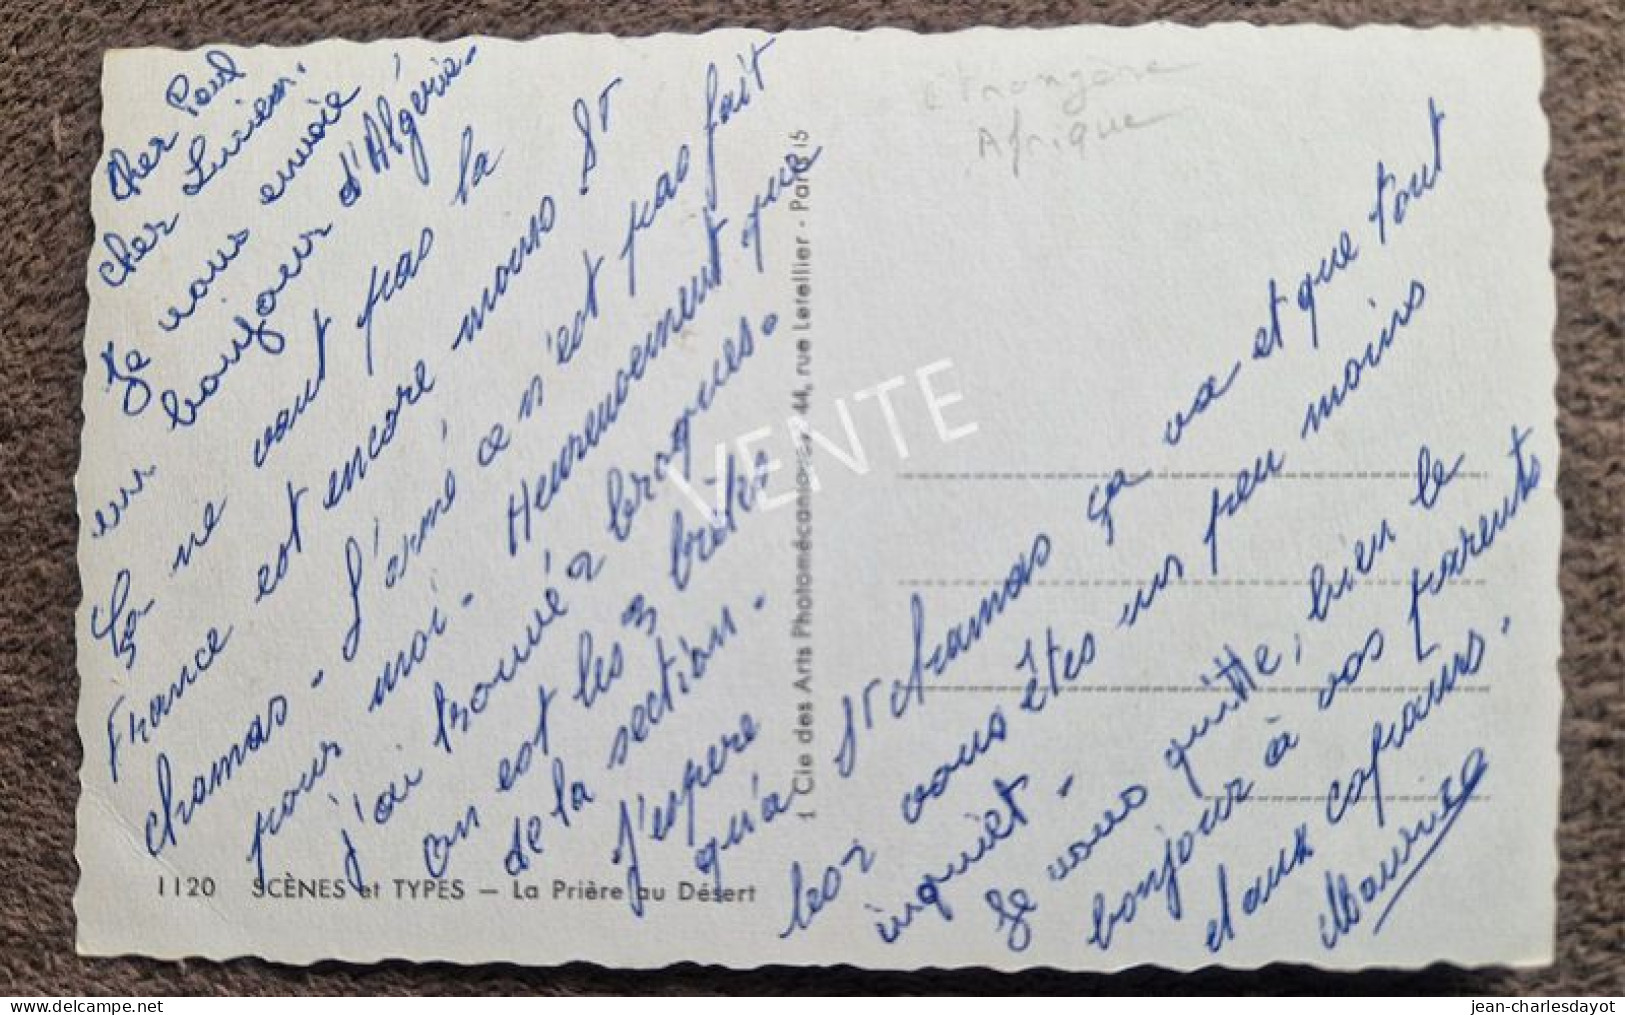 Cher Paul
cher Lucien.
Je vous envoie
un bonjour d'Algérie.
Ça ne vaut pas la
France est encore moins St
chamas. L'armé ce n'est pas fait
pour moi. Heureusement que
j'ai trouvé 2 braques.
On est les 3 brêles
de la section.
J'espere
qu'a St chamas ça va et que tout
les 2 vous êtes un peu moins
inquiet.
Je vous quitte, bien le
bonjour à vos parents
et aux copains.
Maurice
Etrangère
Afrique
1120 SCÈNES et TYPES — La Prière au Désert
1 Cie des Arts Photomécaniques, 44, rue Letellier - Paris 15
VENTE
jean-charlesdayot | delcampe.net